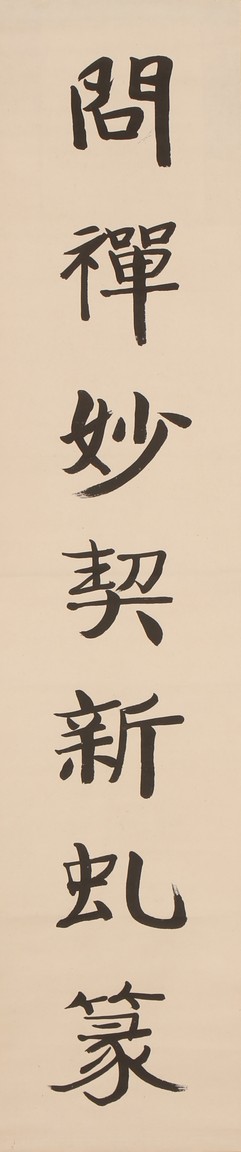 問禪妙契新虬篆